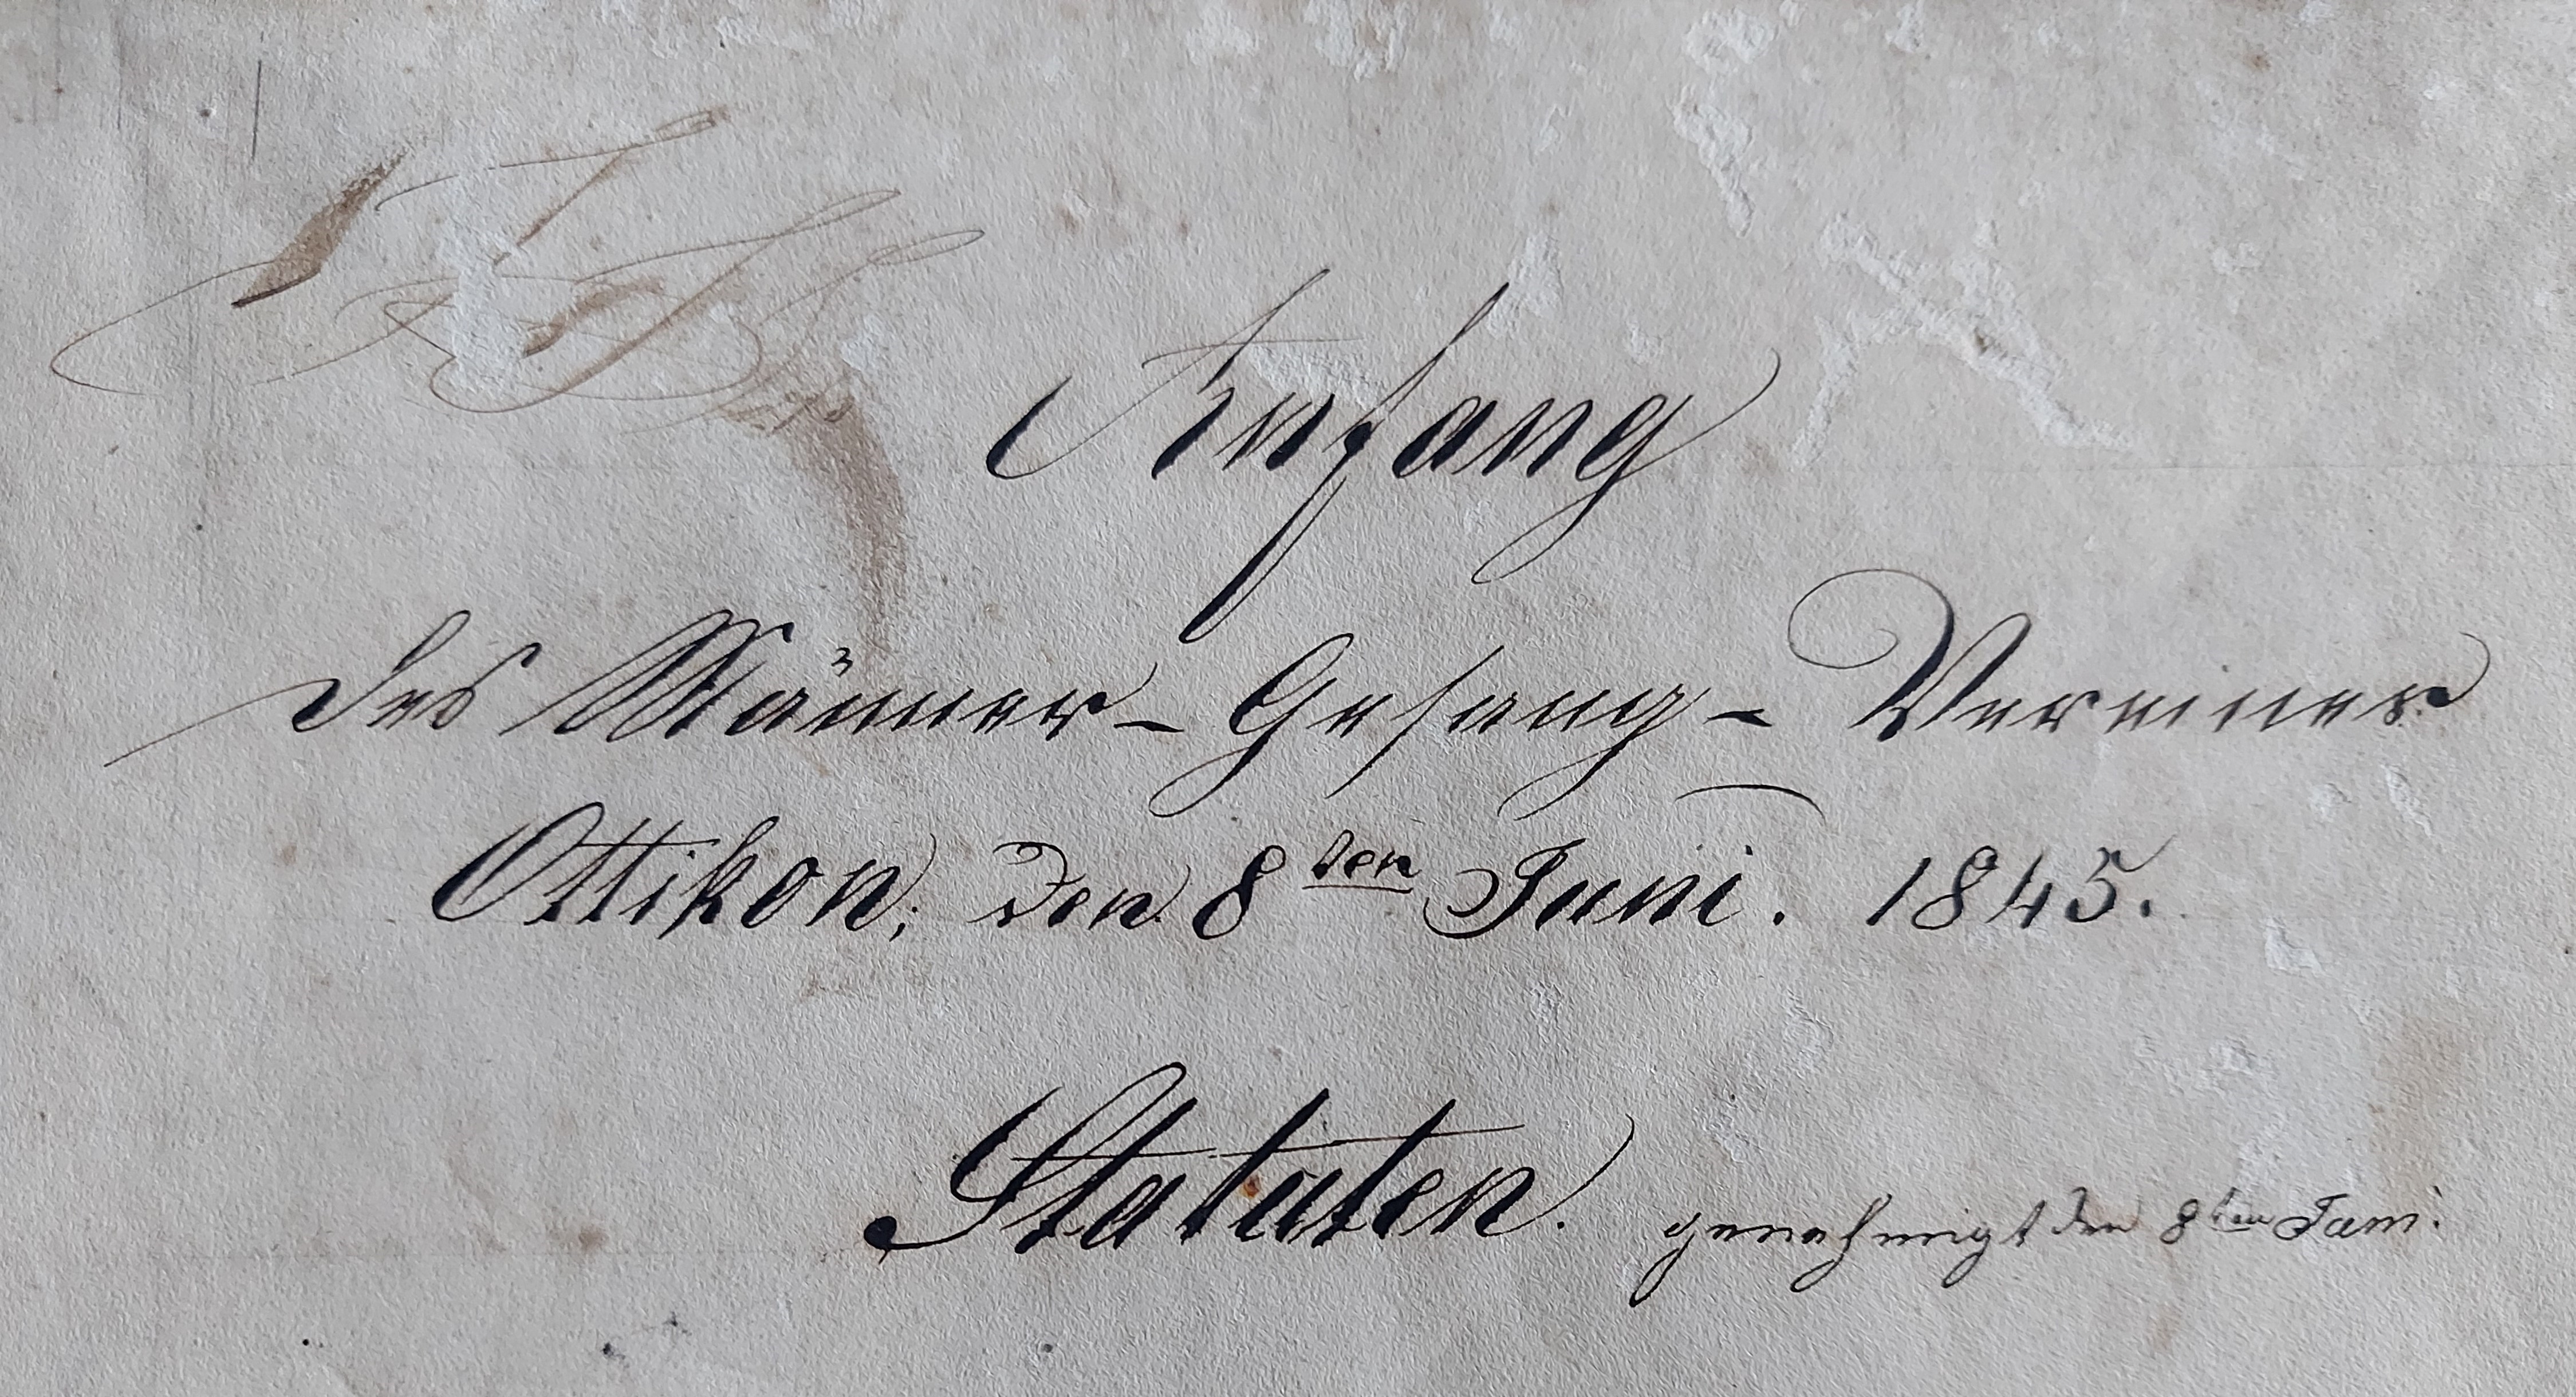 Anfang
des Männer-Gesang-Vereines
Ottikon, den 8ten Juni. 1845.
Statuten. genehmigt den 8ten Juni.